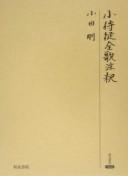 小侍従全歌注釈
小田剛
和泉書院